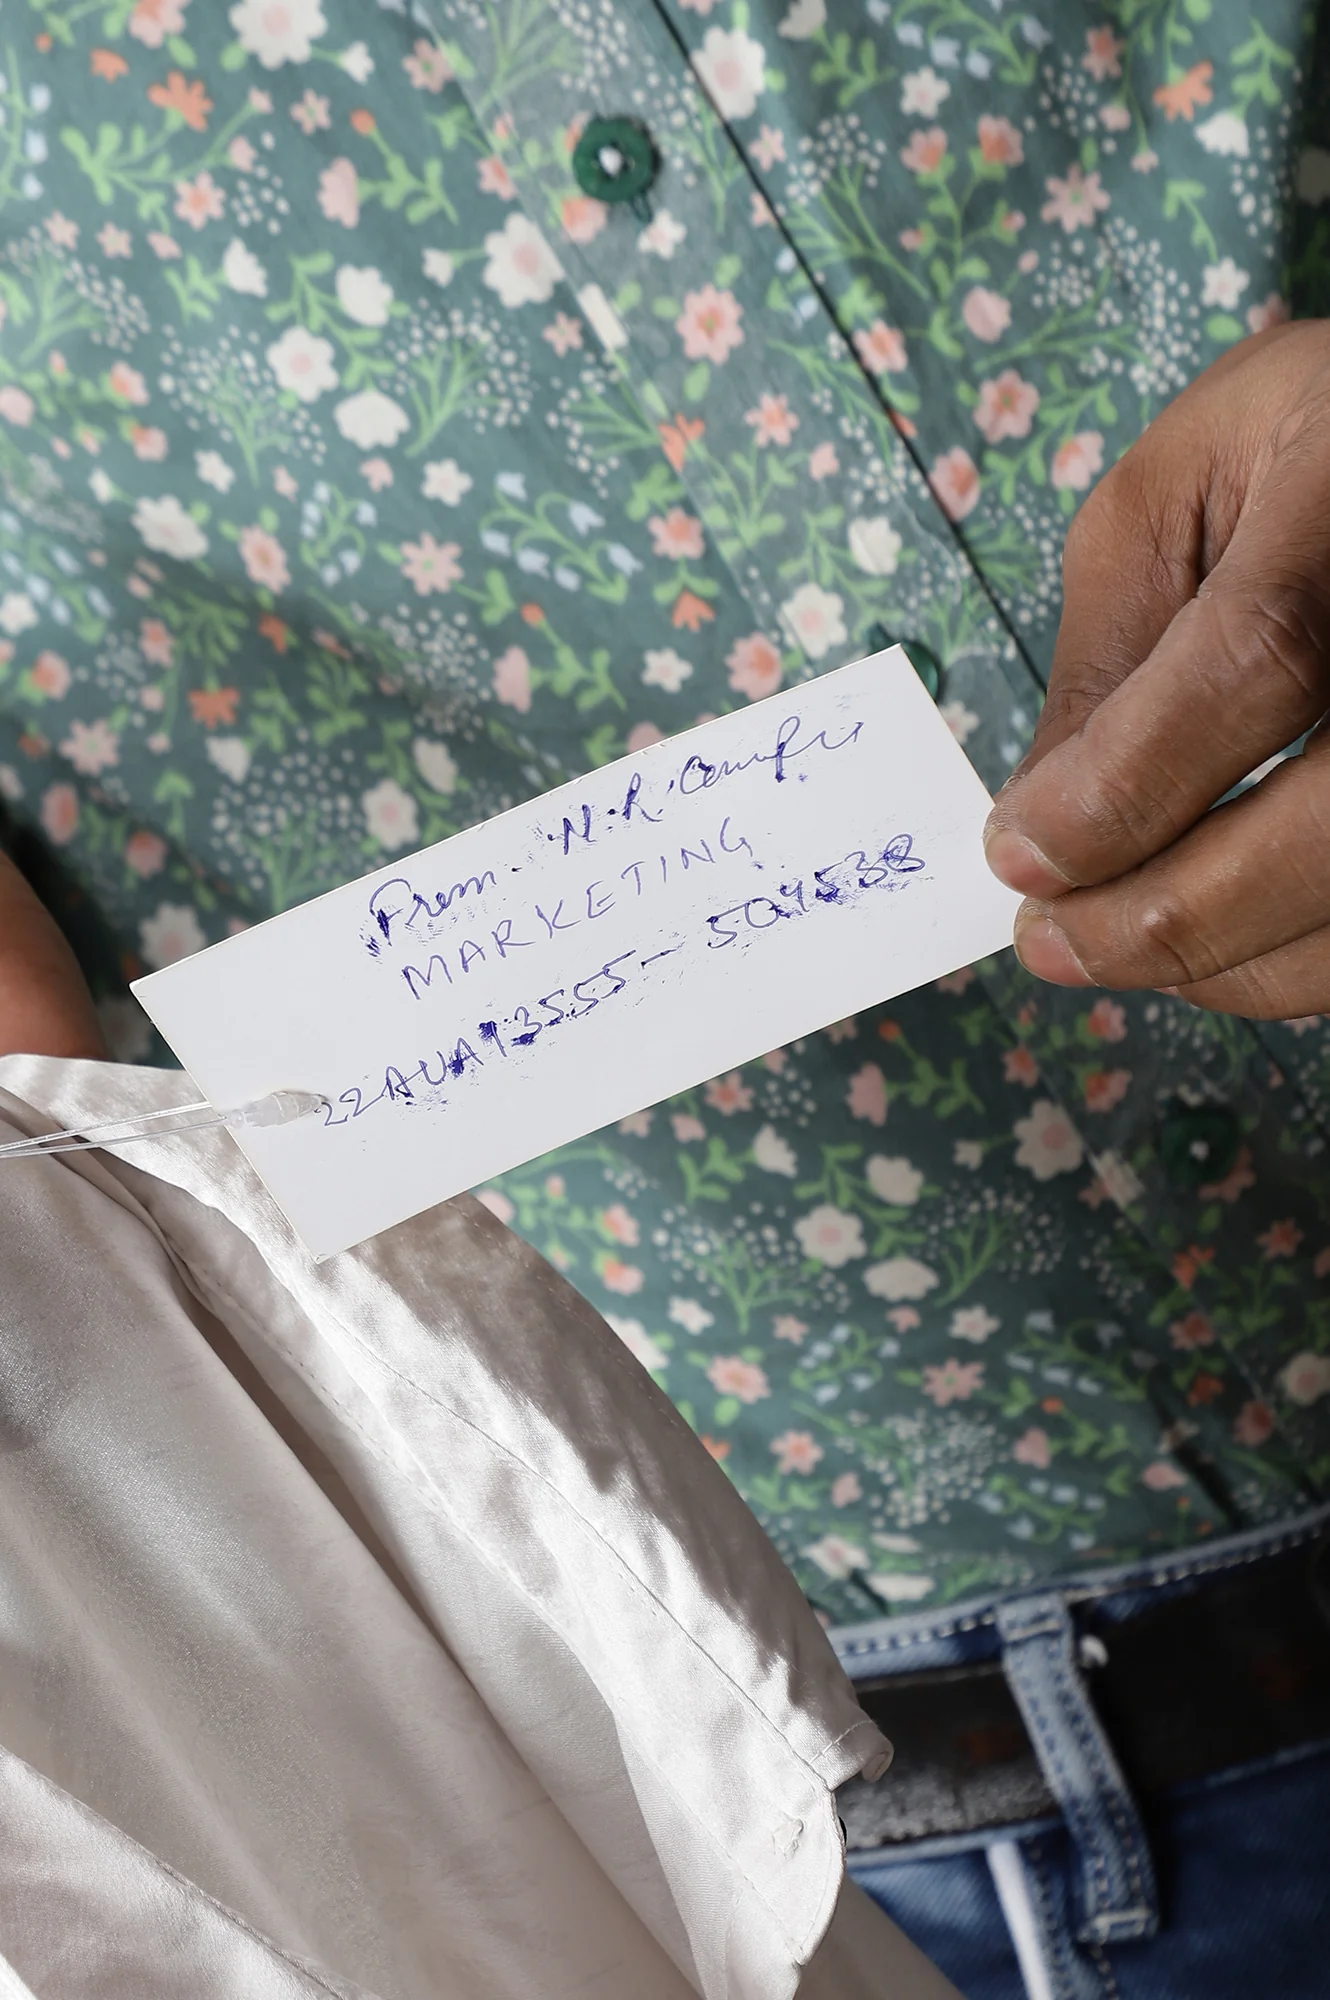 From. N. R.
MARKETING
22AUA13555- 504538